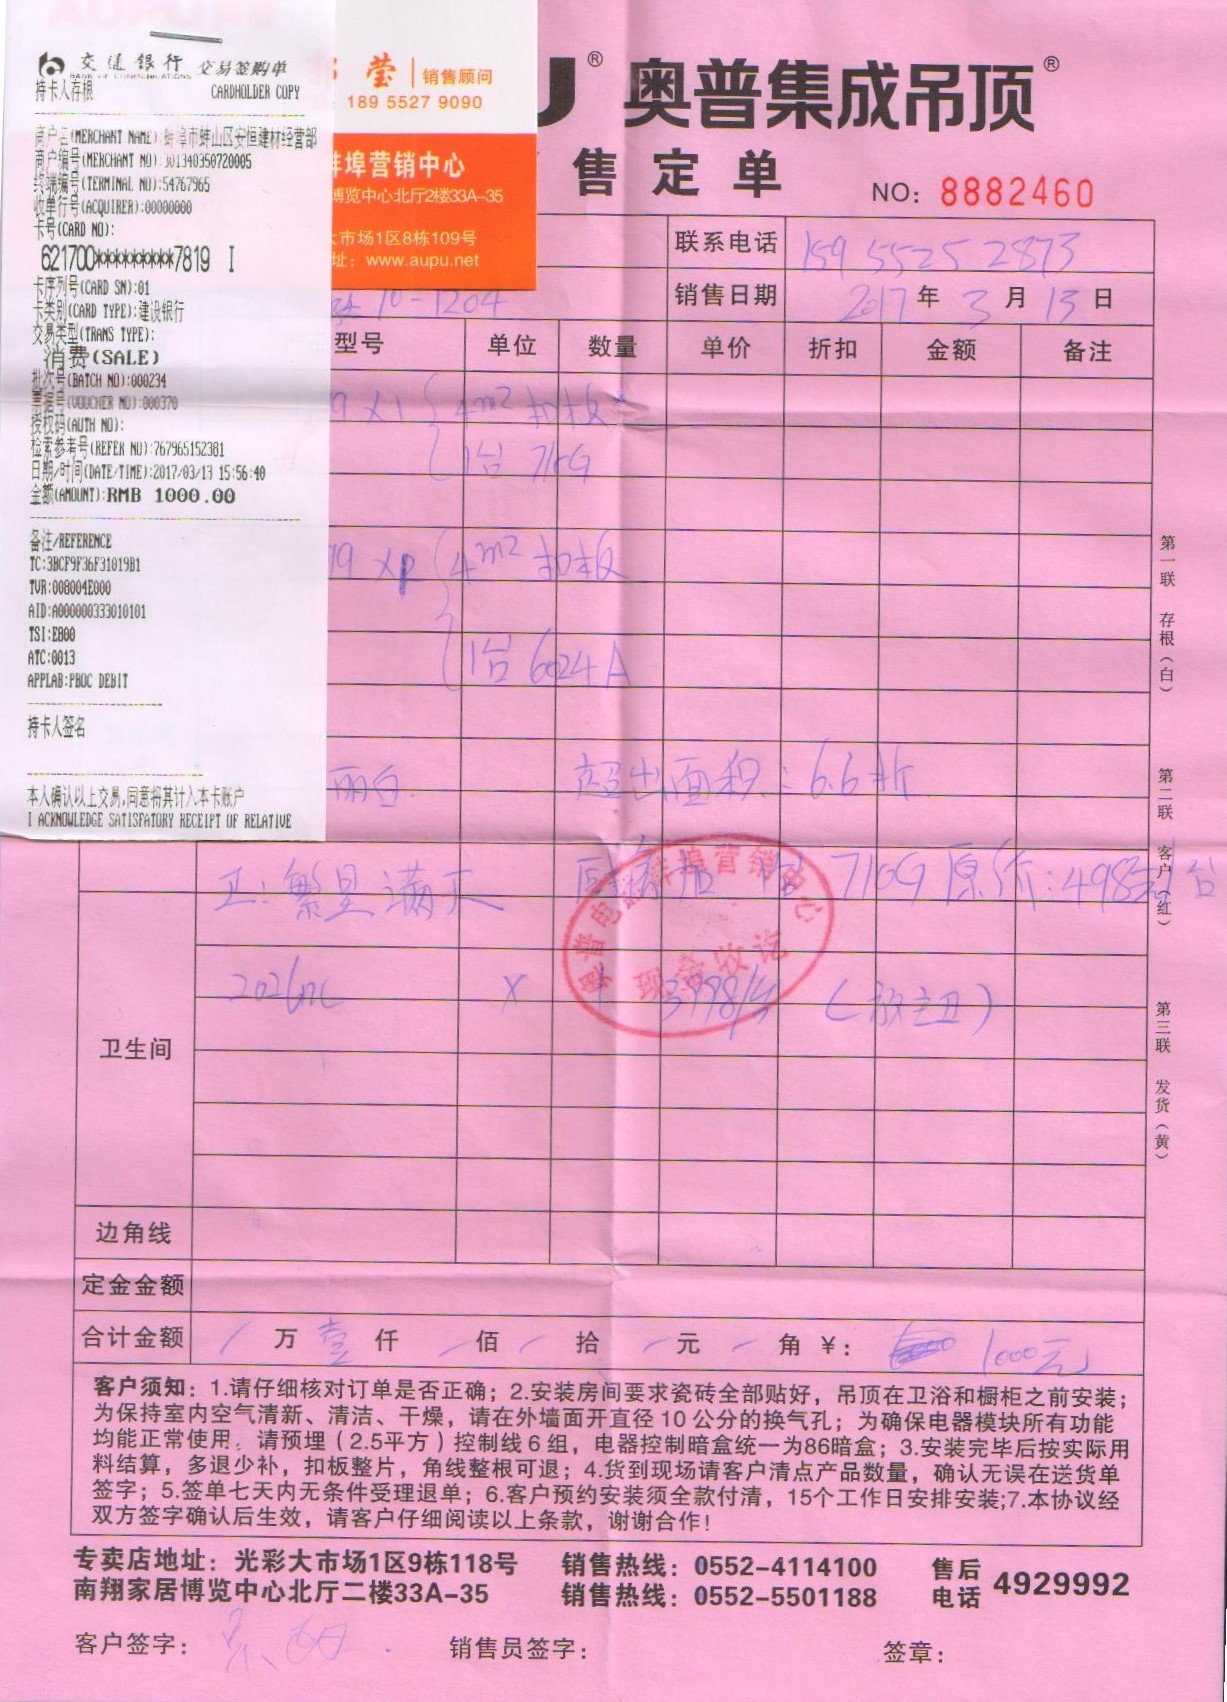 交通银行 交易签购单
BANK OF COMMUNICATIONS
持卡人存根 CARDHOLDER COPY
商户名(MERCHANT NAME):蚌埠市蚌山区安恒建材经营部
商户编号(MERCHANT NO):301340350720005
终端编号(TERMINAL NO):54767965
收单行号(ACQUIRER):00000000
卡号(CARD NO):
621700*********7819 I
卡序列号(CARD SN):01
卡类别(CARD TYPE):建设银行
交易类型(TRANS TYPE):
消费(SALE)
批次号(BATCH NO):000234
票据号(VOUCHER NO):000370
授权码(AUTH NO):
检索参考号(REFER NO):767965152381
日期/时间(DATE/TIME):2017/03/13 15:56:40
金额(AMOUNT):RMB 1000.00
备注/REFERENCE
TC:3BCF9F36F31019B1
TVR:008004E000
AID:A000000333010101
TSI:E800
ATC:0013
APPLAB:PBOC DEBIT
持卡人签名
本人确认以上交易,同意将其计入本卡账户
I ACKNOWLEDGE SATISFATORY RECEIPT OF RELATIVE
莹 销售顾问
189 5527 9090
蚌埠营销中心
博览中心北厅2楼33A-35
大市场1区8栋109号
址：www.aupu.net
U® 奥普集成吊顶®
售定单
NO: 8882460
联系电话 159 5525 2873
10-1204 销售日期 2017年3月13日
型号 单位 数量 单价 折扣 金额 备注
19 X1 4m² 扣板
1台 710G
19 X1 4m² 扣板
1台 6024A
丽白. 超出面积:6.6折
卫:繁星满天 710G原价:498元/台
2026nc X 1 3998/台
奥普电器蚌埠营销中心
现金收讫
卫生间
边角线
定金金额
合计金额 / 万 壹 仟 / 佰 / 拾 / 元 / 角 ¥: 1000元
客户须知：1.请仔细核对订单是否正确；2.安装房间要求瓷砖全部贴好，吊顶在卫浴和橱柜之前安装；
为保持室内空气清新、清洁、干燥，请在外墙面开直径10公分的换气孔；为确保电器模块所有功能
均能正常使用。请预埋（2.5平方）控制线6组，电器控制暗盒统一为86暗盒；3.安装完毕后按实际用
料结算，多退少补，扣板整片，角线整根可退；4.货到现场请客户清点产品数量，确认无误在送货单
签字；5.签单七天内无条件受理退单；6.客户预约安装须全款付清，15个工作日安排安装;7.本协议经
双方签字确认后生效，请客户仔细阅读以上条款，谢谢合作！
专卖店地址：光彩大市场1区9栋118号 销售热线：0552-4114100 售后
南翔家居博览中心北厅二楼33A-35 销售热线：0552-5501188 电话 4929992
客户签字： 销售员签字： 签章：
第一联 存根（白）
第二联 客户（红）
第三联 发货（黄）